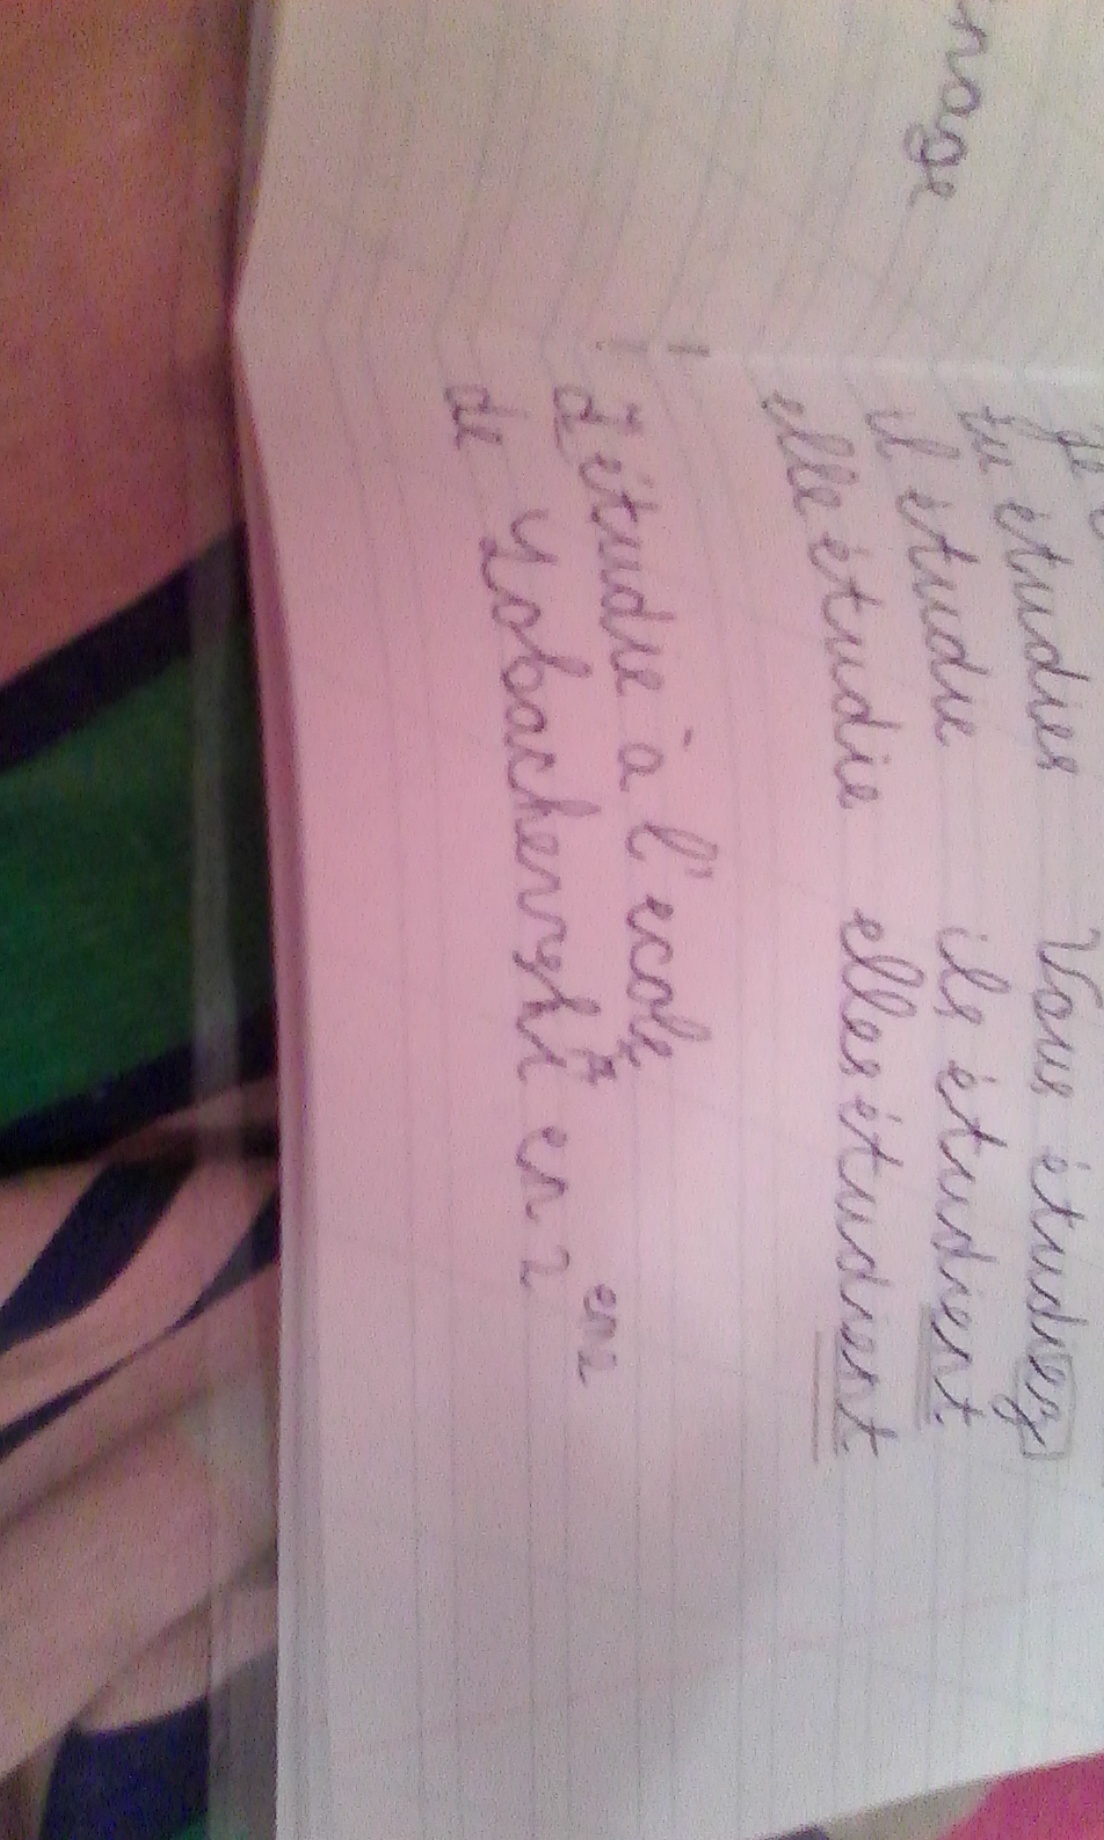 nage
Je
tu étudies Vous étudiez
il étudie ils étudient
elle étudie elles étudient
! J'étudie à l'ecole
en 2
de en 2